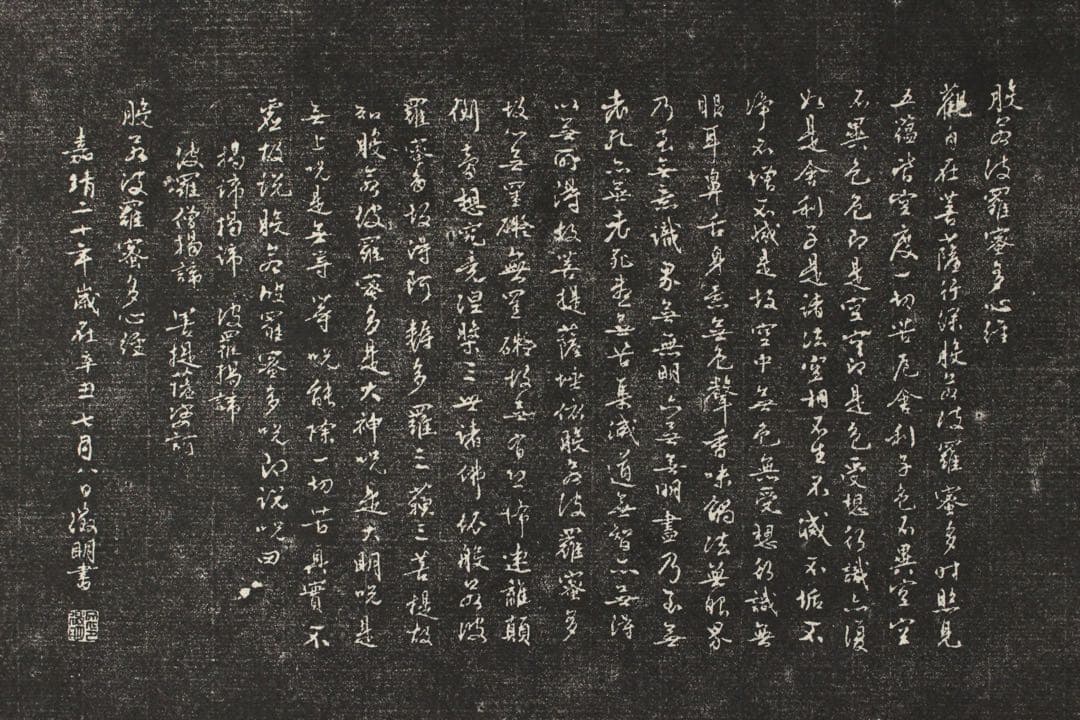 般若波羅蜜多心經
觀自在菩薩行深般若波羅蜜多時照見
五蘊皆空度一切苦厄舍利子色不異空空
不異色色即是空空即是色受想行識亦復
如是舍利子是諸法空相不生不滅不垢不
淨不增不減是故空中無色無受想行識無
眼耳鼻舌身意無色聲香味觸法無眼界
乃至無意識界無無明亦無無明盡乃至無
老死亦無老死盡無苦集滅道無智亦無得
以無所得故菩提薩埵依般若波羅蜜多
故心無罣礙無罣礙故無有恐怖遠離顛
倒夢想究竟涅槃三世諸佛依般若波
羅蜜多故得阿耨多羅三藐三菩提故
知般若波羅蜜多是大神咒是大明咒是
無上咒是無等等咒能除一切苦真實不
虛故說般若波羅蜜多咒即說咒曰
揭諦揭諦 波羅揭諦
波囉僧揭諦 菩提薩婆訶
般若波羅蜜多心經
嘉靖二十年歲在辛丑七月八日徵明書